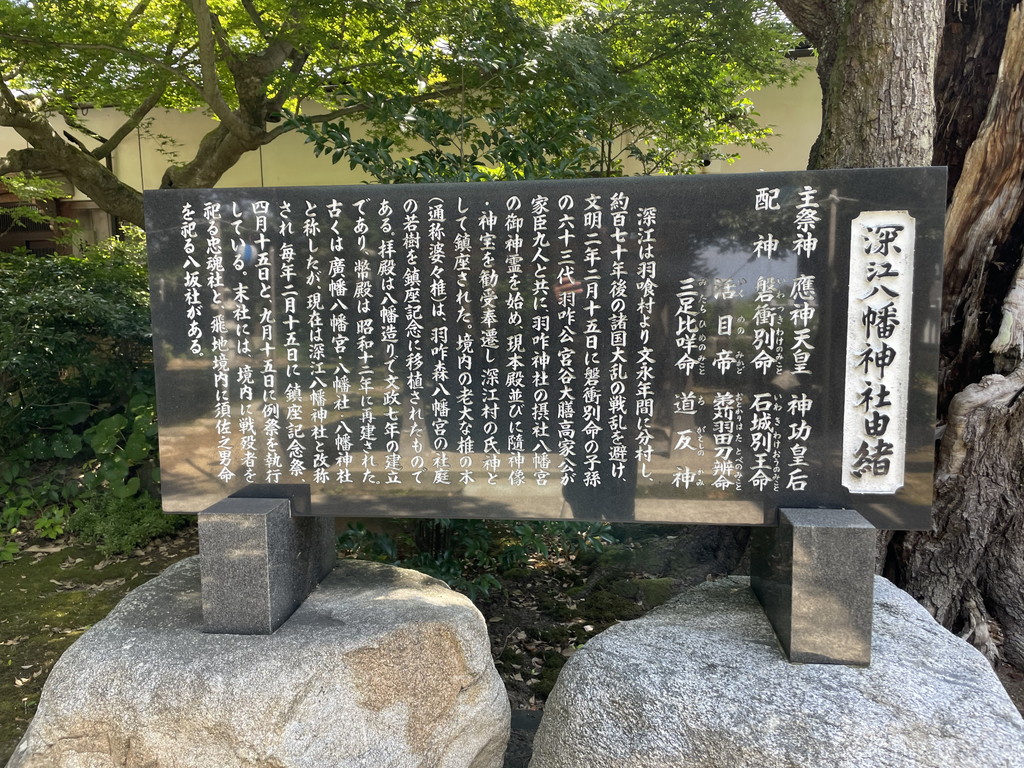 深江八幡神社由緒
主祭神 應神天皇 神功皇后
配神 磐衝別命 石城別王命
活目帝 羽田刀辨命
三足比咩命 道反神
深江は羽喰村より文永年間に分村し、
約百七十年後の諸国大乱の戦乱を避け、
文明二年二月十五日に磐衝別命の子孫
の六十三代羽咋公宮谷大膳高家公が
家臣九人と共に羽咋神社の摂社八幡宮
の御神霊を始め、現本殿並びに隨神像
・神宝を勧受奉遷し、深江村の氏神と
して鎮座された。境内の老大な椎の木
(通称婆々椎)は、羽咋森八幡宮の社庭
の若樹を鎮座記念に移植されたもので
ある。拝殿は八幡造りで文政七年の建立
であり、幣殿は昭和十二年に再建された。
古くは廣幡八幡宮・八幡社・八幡神社
と称したが、現在は深江八幡神社と改称
され、毎年二月十五日に鎮座記念祭、
四月十五日と、九月十五日に例祭を執行
している。末社には、境内に戦殁者を
祀る忠魂社と、飛地境内に須佐之男命
を祀る八坂社がある。